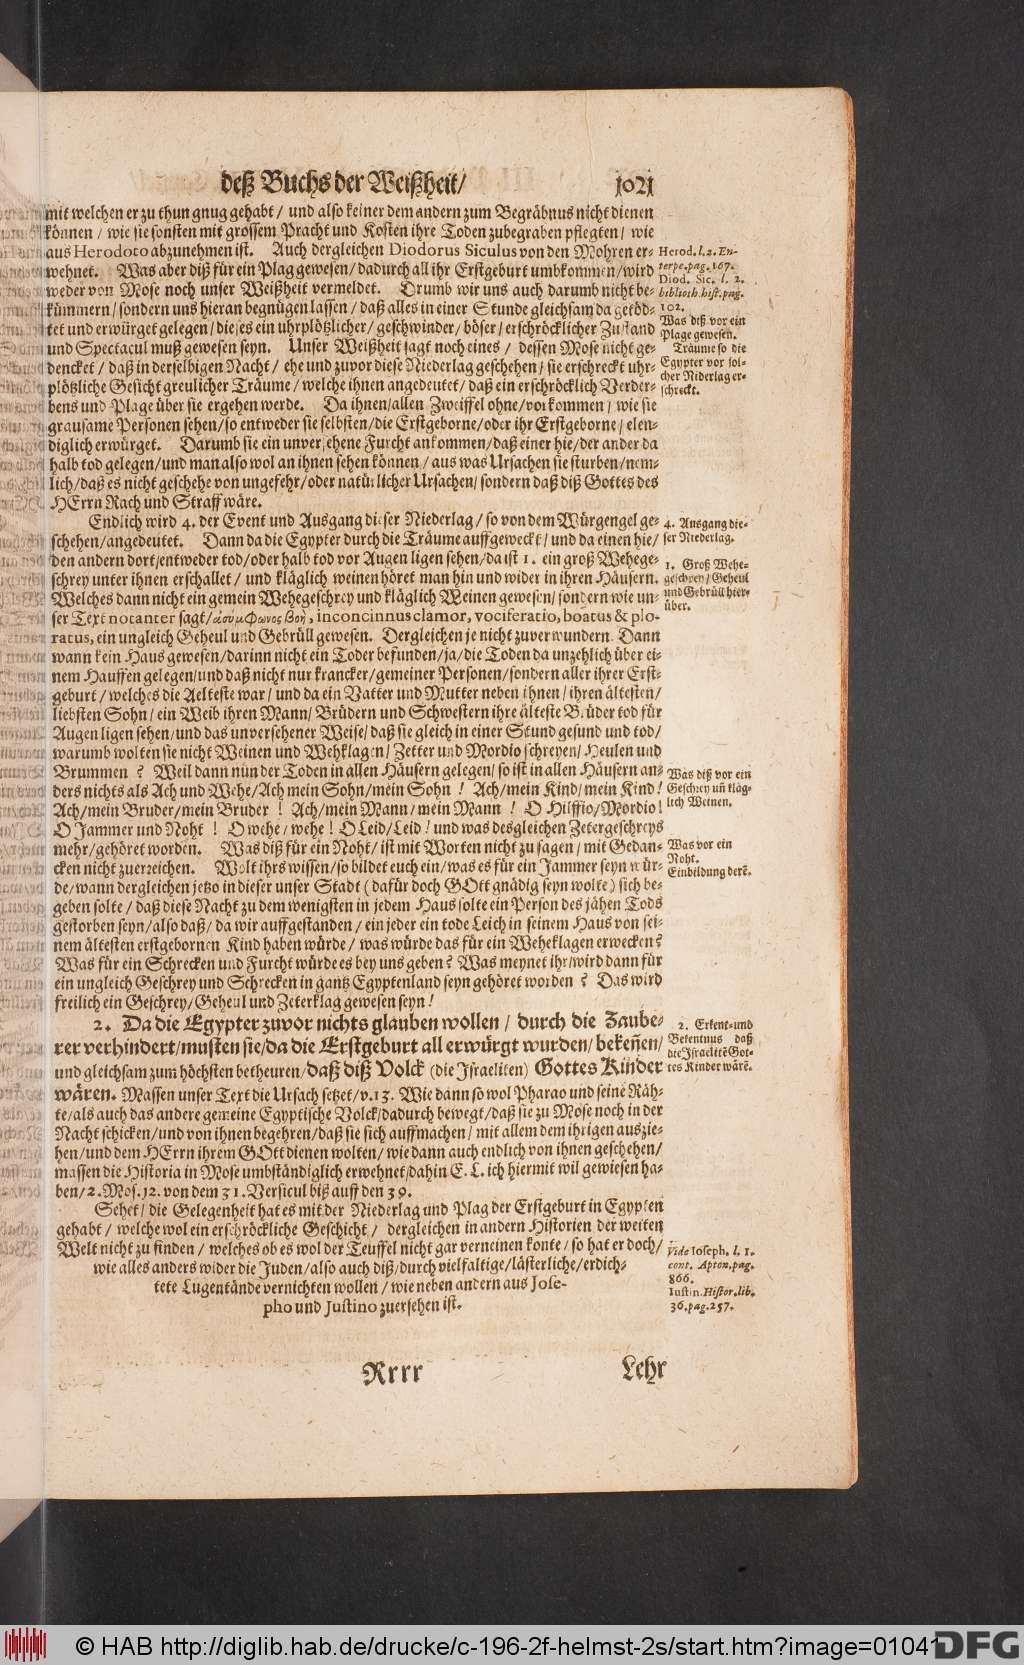 deß Buchs der Weißheit/ 1021
mit welchen er zu thun gnug gehabt/ und also keiner dem andern zum Begräbnus nicht dienen
können/ wie sie sonsten mit grossem Pracht und Kosten ihre Toden zubegraben pflegten/ wie
aus Herodoto abzunehmen ist. Auch dergleichen Diodorus Siculus von den Mohren er-
wehnet. Was aber diß für ein Plag gewesen/ dadurch all ihr Erstgeburt umbkommen/ wird
weder von Mose noch unser Weißheit vermeldet. Drumb wir uns auch darumb nicht be-
kümmern/ sondern uns hieran begnügen lassen/ daß alles in einer Stunde gleichsam da getöd-
tet und erwürget gelegen/ die es ein uhrplötzlicher/ geschwinder/ böser/ erschröcklicher Zustand
und Spectacul muß gewesen seyn. Unser Weißheit sagt noch eines/ dessen Mose nicht ge-
dencket/ daß in derselbigen Nacht/ ehe und zuvor diese Niederlag geschehen/ sie erschreckt uhr-
plötzliche Gesicht greulicher Träume/ welche ihnen angedeutet/ daß ein erschröcklich Verder-
bens und Plage über sie ergehen werde. Da ihnen/ allen Zweiffel ohne/ vorkommen/ wie sie
grausame Personen sehen/ so entweder sie selbsten/ die Erstgeborne/ oder ihr Erstgeborne/ elen-
diglich erwürget. Darumb sie ein unversehene Furcht ankommen/ daß einer hie/ der ander da
halb tod gelegen/ und man also wol an ihnen sehen können/ aus was Ursachen sie sturben/ nem-
lich/ daß es nicht geschehe von ungefehr/ oder natürlicher Ursachen/ sondern daß diß Gottes des
HErrn Rach und Straff wäre.
Endlich wird 4. der Event und Ausgang dieser Niederlag/ so von dem Würgengel ge-
schehen/ angedeutet. Dann da die Egypter durch die Träume auffgeweckt/ und da einen hie/
den andern dort/ entweder tod/ oder halb tod vor Augen ligen sehen/ da ist 1. ein groß Wehege-
schrey unter ihnen erschallet/ und kläglich weinen höret man hin und wider in ihren Häusern.
Welches dann nicht ein gemein Wehegeschrey und kläglich Weinen gewesen/ sondern wie un-
ser Text notanter sagt/ ἀσυμφωνος βοὴ, inconcinnus clamor, vociferatio, boatus & plo-
ratus, ein ungleich Geheul und Gebrüll gewesen. Dergleichen je nicht zuverwundern. Dann
wann kein Haus gewesen/ darinn nicht ein Toder befunden/ ja/ die Toden da unzehlich über ei-
nem Hauffen gelegen/ und daß nicht nur krancker/ gemeiner Personen/ sondern aller ihrer Erst-
geburt/ welches die Aelteste war/ und da ein Vatter und Mutter neben ihnen/ ihren ältesten/
liebsten Sohn/ ein Weib ihren Mann/ Brüdern und Schwestern ihre älteste Brüder tod für
Augen ligen sehen/ und das unversehener Weise/ daß sie gleich in einer Stund gesund und tod/
warumb wolten sie nicht Weinen und Wehklagen/ Zetter und Mordio schreyen/ Heulen und
Brummen? Weil dann nun der Toden in allen Häusern gelegen/ so ist in allen Häusern an-
ders nichts als Ach und Wehe/ Ach mein Sohn/ mein Sohn! Ach/ mein Kind/ mein Kind!
Ach/ mein Bruder/ mein Bruder! Ach/ mein Mann/ mein Mann! O Hilffio/ Mordio!
O Jammer und Noht! O wehe/ wehe! O Leid/ Leid! und was desgleichen Zetergeschreys
mehr/ gehöret worden. Was diß für ein Noht/ ist mit Worten nicht zu sagen/ mit Gedan-
cken nicht zuerreichen. Wolt ihrs wissen/ so bildet euch ein/ was es für ein Jammer seyn wür-
de/ wann dergleichen jetzo in dieser unser Stadt (dafür doch GOtt gnädig seyn wolte) sich be-
geben solte/ daß diese Nacht zu dem wenigsten in jedem Haus solte ein Person des jähen Tods
gestorben seyn/ also daß/ da wir auffgestanden/ ein jeder ein tode Leich in seinem Haus von sei-
nem ältesten erstgebornen Kind haben würde/ was würde das für ein Weheklagen erwecken?
Was für ein Schrecken und Furcht würde es bey uns geben? Was meynet ihr/ wird dann für
ein ungleich Geschrey und Schrecken in gantz Egyptenland seyn gehöret worden? Das wird
freilich ein Geschrey/ Geheul und Zeterklag gewesen seyn!
2. Da die Egypter zuvor nichts glauben wollen/ durch die Zaube-
rer verhindert/ musten sie/ da die Erstgeburt all erwürgt wurden/ bekeñen/
und gleichsam zum höchsten betheuren/ daß diß Volck (die Israeliten) Gottes Kinder
wären. Massen unser Text die Ursach setzet/ v. 13. Wie dann so wol Pharao und seine Räh-
te/ als auch das andere gemeine Egyptische Volck/ dadurch bewegt/ daß sie zu Mose noch in der
Nacht schicken/ und von ihnen begehren/ daß sie sich auffmachen/ mit allem dem ihrigen auszie-
hen/ und dem HErrn ihrem GOtt dienen wolten/ wie dann auch endlich von ihnen geschehen/
massen die Historia in Mose umbständiglich erwehnet/ dahin E. L. ich hiermit wil gewiesen ha-
ben/ 2. Mos. 12. von dem 31. Versicul biß auff den 39.
Sehet/ die Gelegenheit hat es mit der Niederlag und Plag der Erstgeburt in Egypten
gehabt/ welche wol ein erschröckliche Geschicht/ dergleichen in andern Historien der weiten
Welt nicht zu finden/ welches ob es wol der Teuffel nicht gar verneinen konte/ so hat er doch/
wie alles anders wider die Juden/ also auch diß/ durch vielfaltige/ lästerliche/ erdich-
tete Lugentände vernichten wollen/ wie neben andern aus Jose-
pho und Justino zuersehen ist.
Rrrr Lehr
Herod. l. 2. En-
terpe. pag. 167.
Diod. Sic. l. 2.
biblioth. hist. pag.
102.
Was diß vor ein
Plage gewesen.
Träume so die
Egypter vor sol-
cher Niderlag er-
schreckt.
4. Ausgang die-
ser Niederlag.
1. Groß Wehe-
geschrey/ Geheul
und Gebrüll hier-
über.
Was diß vor ein
Geschrey uñ kläg-
lich Weinen.
Was vor ein
Noht.
Einbildung derẽ.
2. Erkent- und
Bekentnus daß
die Israelitẽ Got-
tes Kinder wärẽ.
Vide Ioseph. l. 1.
cont. Apion. pag.
866.
Iustin. Histor. lib.
36. pag. 257.
© HAB http://diglib.hab.de/drucke/c-196-2f-helmst-2s/start.htm?image=01041
DFG